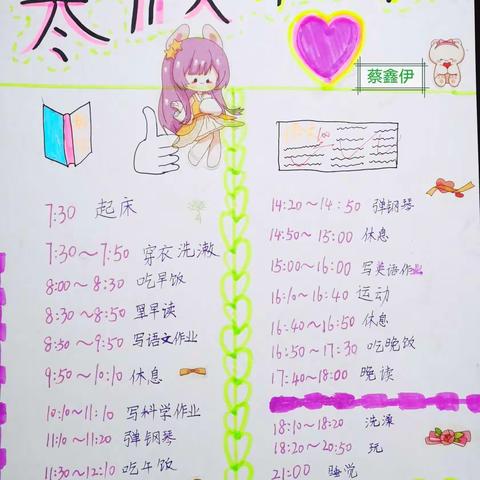 寒假
蔡鑫伊
7:30 起床
7:30～7:50 穿衣洗漱
8:00～8:30 吃早饭
8:30～8:50 里早读
8:50～9:50 写语文作业
9:50～10:10 休息
10:10～11:10 写科学作业
11:10～11:20 弹钢琴
11:30～12:10 吃午饭
14:20～14:50 弹钢琴
14:50～15:00 休息
15:00～16:00 写英语作业
16:10～16:40 运动
16:40～16:50 休息
16:50～17:30 吃晚饭
17:40～18:00 晚读
18:10～18:20 洗澡
18:20～20:50 玩
21:00 睡觉